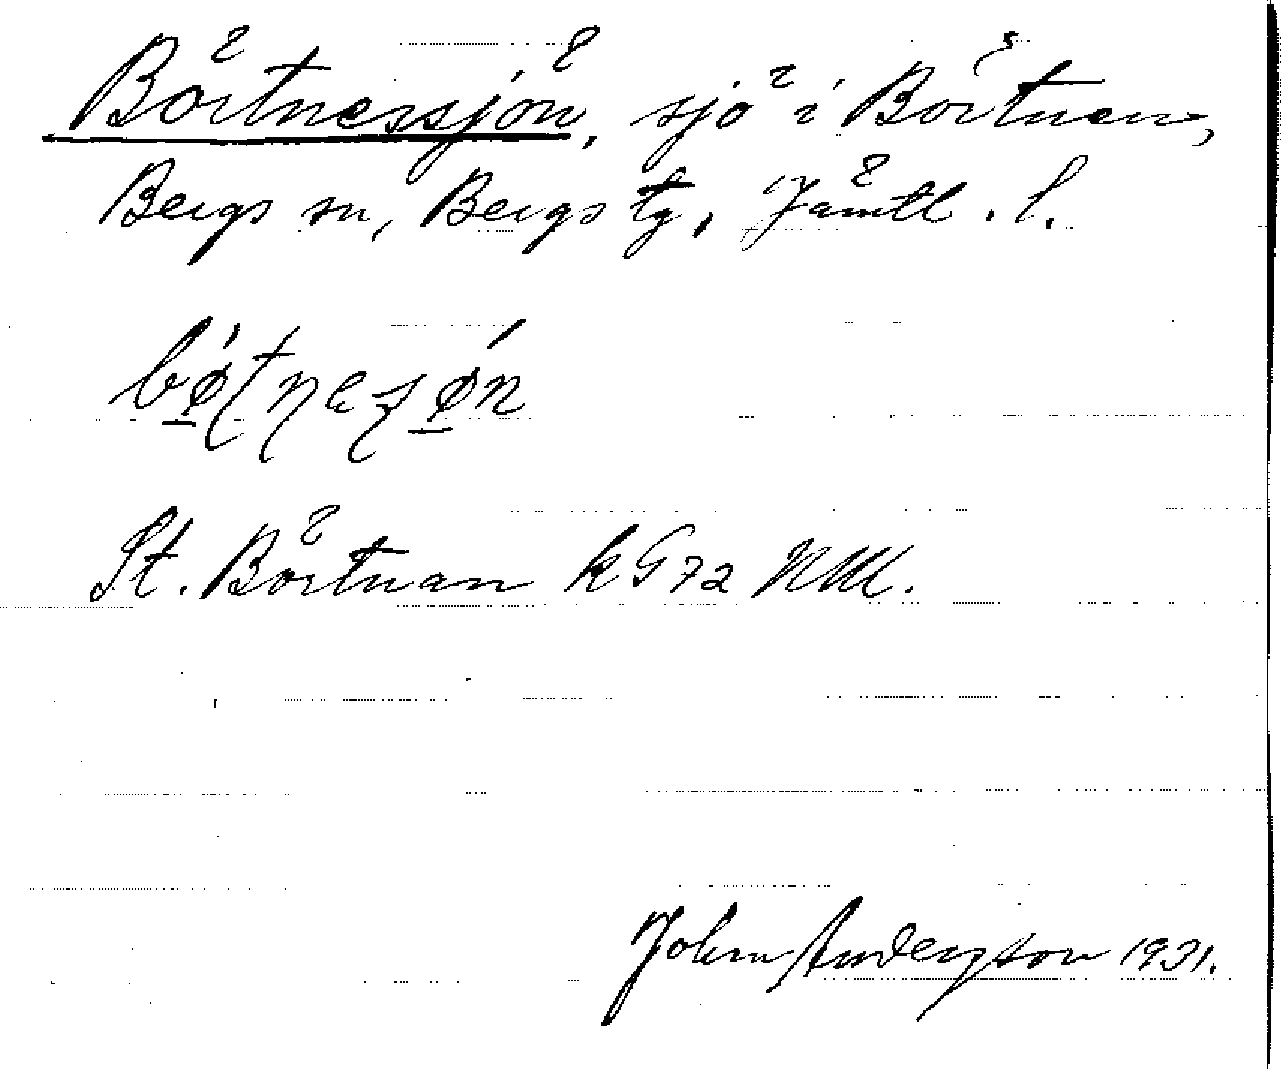 Börtnessjön, sjö i Börtnen,
Bergs sn, Bergs tg, Jämtl. l.
St. Börtnan kG72 NW.
John Anderzson 1931.